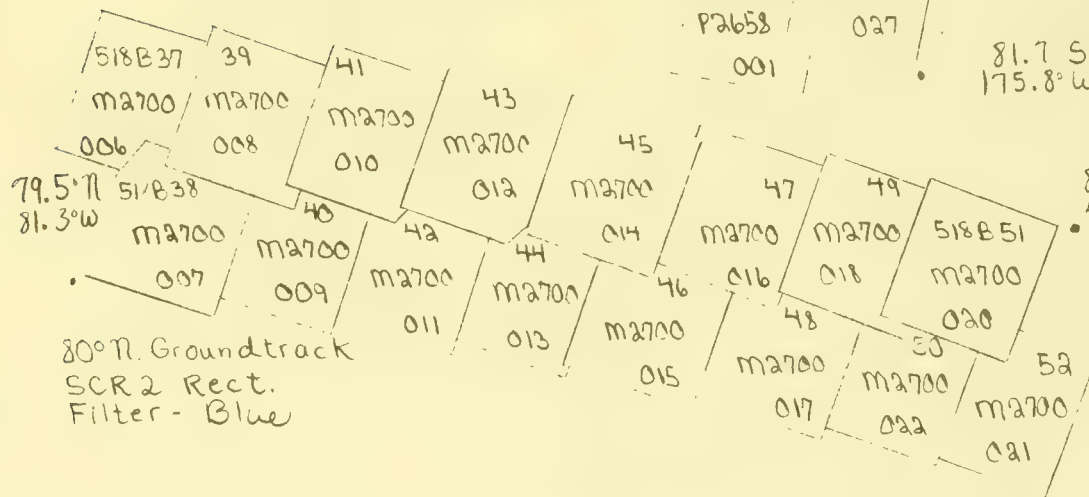 P2658
001
027
81.7 S
175.8° W
518B37
M2700
006
39
M2700
008
41
M2700
010
43
M2700
012
45
M2700
014
47
M2700
016
49
M2700
018
518B51
M2700
020
79.5°N
81.3°W
518B38
M2700
007
40
M2700
009
42
M2700
011
44
M2700
013
46
M2700
015
48
M2700
017
50
M2700
022
52
M2700
021
80°N. Groundtrack
SCR2 Rect.
Filter - Blue